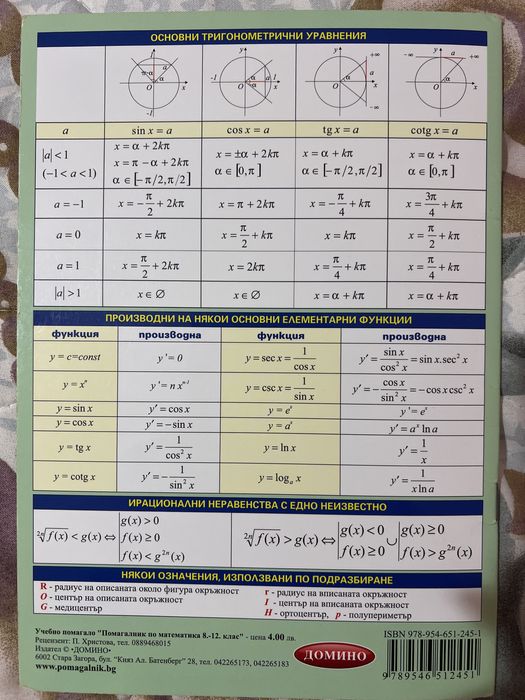 ОСНОВНИ ТРИГОНОМЕТРИЧНИ УРАВНЕНИЯ
y 1 a π-α α O x -1
y -1 α a 1 O α x
y +∞ a α O x -∞
-∞ y a +∞ α O x
a sin x = a cos x = a tg x = a cotg x = a
|a| < 1 (-1 < a < 1) x = α + 2kπ x = π - α + 2kπ α ∈ [-π/2, π/2] x = ±α + 2kπ α ∈ [0, π] x = α + kπ α ∈ [-π/2, π/2] x = α + kπ α ∈ [0, π]
a = -1 x = -π/2 + 2kπ x = π + 2kπ x = -π/4 + kπ x = 3π/4 + kπ
a = 0 x = kπ x = π/2 + kπ x = kπ x = π/2 + kπ
a = 1 x = π/2 + 2kπ x = 2kπ x = π/4 + kπ x = π/4 + kπ
|a| > 1 x ∈ ∅ x ∈ ∅ x = α + kπ x = α + kπ
ПРОИЗВОДНИ НА НЯКОИ ОСНОВНИ ЕЛЕМЕНТАРНИ ФУНКЦИИ
функция производна функция производна
y = c=const y' = 0 y = sec x = 1/cos x y' = sin x/cos² x = sin x.sec² x
y = xⁿ y' = n xⁿ⁻¹ y = csc x = 1/sin x y' = -cos x/sin² x = -cos x csc² x
y = sin x y' = cos x y = eˣ y' = eˣ
y = cos x y' = -sin x y = aˣ y' = aˣ ln a
y = tg x y' = 1/cos² x y = ln x y' = 1/x
y = cotg x y' = -1/sin² x y = logₐ x y' = 1/x ln a
ИРАЦИОНАЛНИ НЕРАВЕНСТВА С ЕДНО НЕИЗВЕСТНО
²ⁿ√f(x) < g(x) ⇔ |g(x) > 0 f(x) ≥ 0 f(x) < g²ⁿ(x) ²ⁿ√f(x) > g(x) ⇔ |g(x) < 0 f(x) ≥ 0 ∪ |g(x) ≥ 0 f(x) > g²ⁿ(x)
НЯКОИ ОЗНАЧЕНИЯ, ИЗПОЛЗВАНИ ПО ПОДРАЗБИРАНЕ
R - радиус на описаната около фигура окръжност r - радиус на вписаната окръжност
O - център на описаната окръжност I - център на вписаната окръжност
G - медицентър H - ортоцентър, p - полупериметър
Учебно помагало "Помагалник по математика 8.-12. клас" - цена 4.00 лв.
Рецензент: П. Христова, тел. 0889468015
Издател © «ДОМИНО»
6002 Стара Загора, бул. "Княз Ал. Батенберг" 28, тел. 042265173, 042265183
www.pomagalnik.bg
ДОМИНО
ISBN 978-954-651-245-1
9 789546 512451